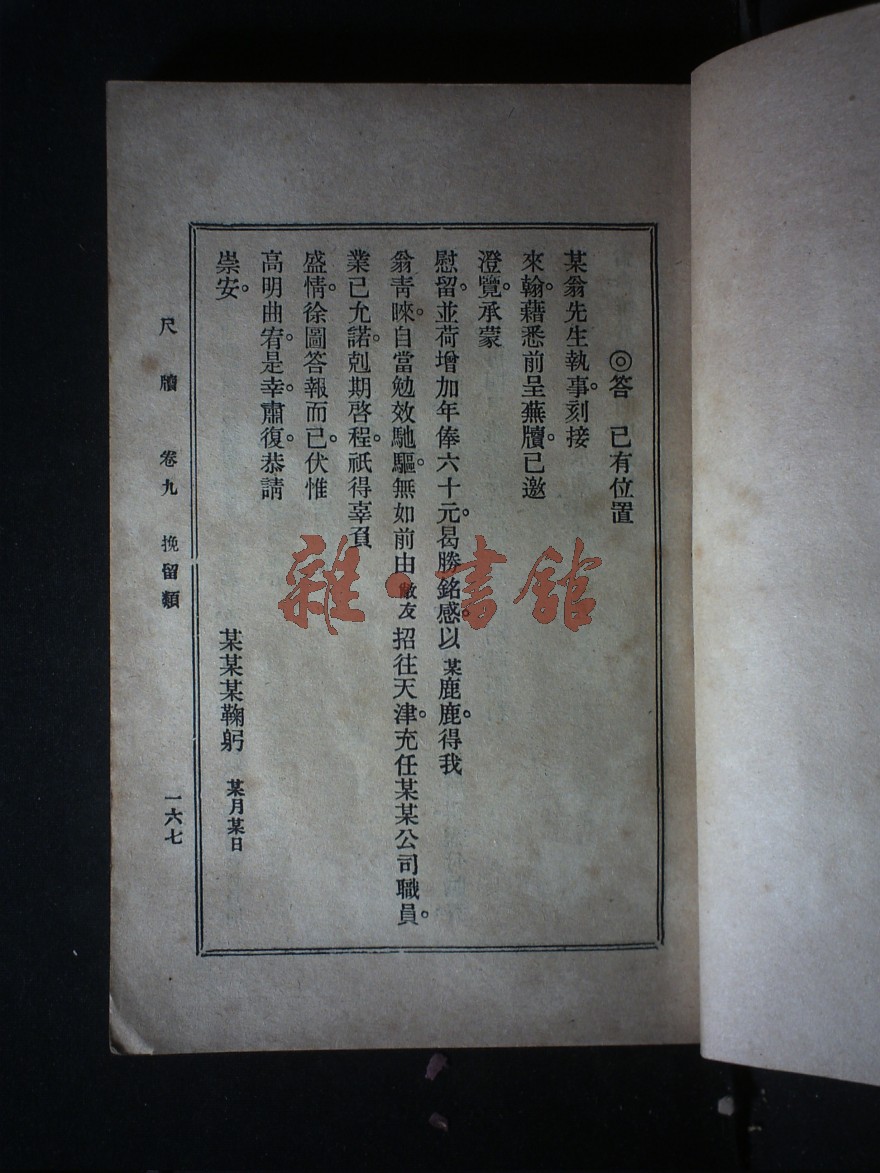 ◎答　已有位置
某翁先生執事。刻接
來翰。藉悉前呈蕪牘。已邀
澄覽。承蒙
慰留。並荷增加年俸六十元。曷勝銘感。以某鹿鹿。得我
翁青睞。自當勉效馳驅。無如前由敝友招往天津。充任某某公司職員。
業已允諾。剋期啓程。祇得辜負
盛情。徐圖答報而已。伏惟
高明曲宥。是幸。肅復。恭請
崇安。　某某某鞠躬　某月某日
尺牘　卷九　挽留類　一六七
雜·書館